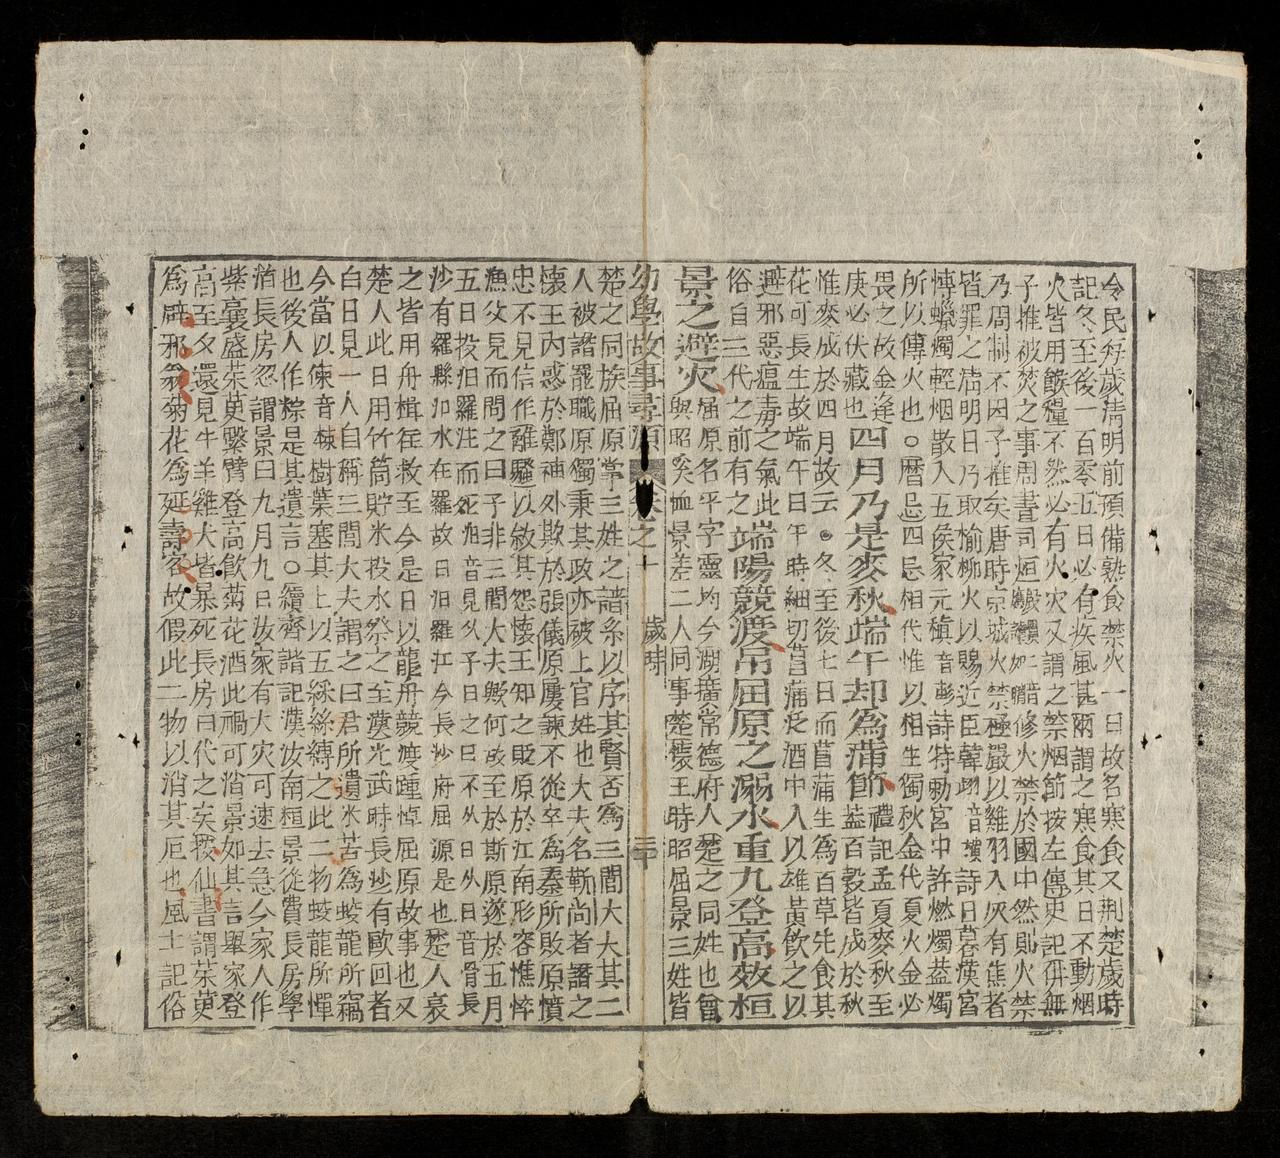 令民每歲清明前預備熟食禁火一日故名寒食又荆楚歲時
記冬至後一百零五日必有疾風甚雨謂之寒食其日不動烟
火皆用餱糧不然必有火灾又謂之禁烟節按左傳史記併無
子推被焚之事周書司烜仲春以木鐸修火禁於國中然則火禁
乃周制不因子推矣唐時京城火禁極嚴以雞羽入灰有焦者
皆罪之清明日乃取榆柳火以賜近臣韓翃音橫詩日暮漢宮
傳蠟燭輕烟散入五侯家元稹音彭詩特勅宮中許燃燭葢燭
所以傳火也○曆忌四忌相代惟以相生獨秋金代夏火金必
畏之故金逢
庚必伏藏也四月乃是麥秋端午却為蒲節禮記孟夏麥秋至葢百穀皆成於秋
惟麥成於四月故云○冬至後七日而菖蒲生為百草先食其
花可長生故端午日午時細切菖蒲泛酒中入以雄黃飲之以
避邪惡瘟毒之氣此
俗自三代之前有之端陽競渡吊屈原之溺水重九登高效桓
景之避灾屈原名平字靈均今湖擴常德府人楚之同姓也曾與昭奚恤景差二人同事楚懷王時昭屈景三姓皆
幼學故事尋源 卷之十 歲時 三十
楚之同族屈原掌三姓之譜系以序其賢否為三閭大夫其二
人被譖罷職原獨秉其政亦被上官姓也大夫名靳尚者譖之
懷王內惑於鄭袖外欺於張儀原屢諫不從卒為秦所敗原憤
忠不見信作離騷以敘其怨懷王知之貶原於江南形容憔悴
漁父見而問之曰子非三閭大夫歟何故至於斯原遂於五月
五日投汨羅注而死汨音見外子日之曰不从日从日音骨長
沙有羅縣汨水在羅故曰汨羅江今長沙府屈源是也楚人哀
之皆用舟楫往救至今是日以龍舟競渡踵悼屈原故事也又
楚人此日用竹筒貯米投水祭之至漢光武時長沙有歐回者
白日見一人自稱三閭大夫謂之曰君所遺米苦為蛟龍所竊
今當以楝音楝樹葉塞其上以五綵絲縛之此二物蛟龍所憚
也後人作粽是其遺言○續齊諧記漢汝南桓景從費長房學
道長房忽謂景曰九月九日汝家有大灾可速去急令家人作
紫囊盛茱萸繫臂登高飲菊花酒此禍可消景如其言舉家登
高至夕還見牛羊雞犬皆暴死長房曰代之矣按仙書謂茱萸
為辟邪翁菊花為延壽客故假此二物以消其厄也風土記俗